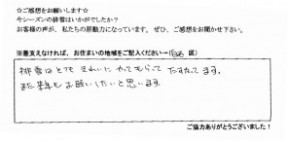 ☆ご感想をお願いします☆
今シーズンの排雪はいかがでしたか?
お客様の声が、私たちの原動力になっています。ぜひ、ご感想をお聞かせ下さい。
※差支えなければ、お住まいの地域をご記入ください→( 区)
排雪はとても きれいに やってもらって たすかってます。
また来年も お願いしたいと思います。
ご協力ありがとうございました!